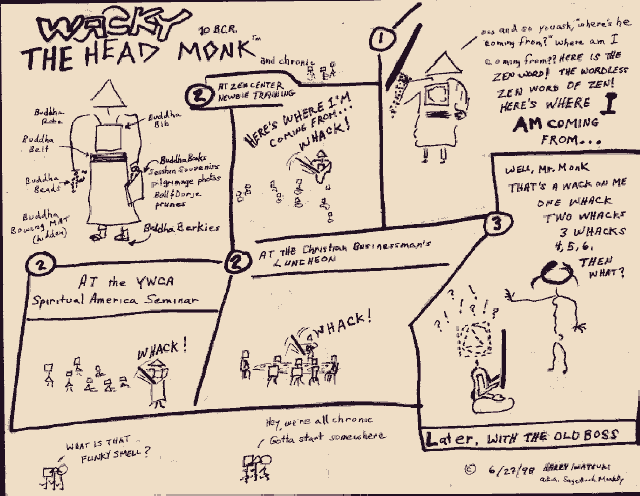 WACKY
THE HEAD MONK™
10 B.C.R.
and chronic
Buddha
Robe
Buddha
Bib
Buddha
Belt
Buddha
Beads
Buddha Books
Session Souvenirs
pilgrimage photos
Bell & Dorje
prunes
Buddha
Bowing MAT
(hidden)
Buddha Berkies
1
ows and so you ask, "where's he
coming from?" where am I
coming from?? HERE IS THE
ZEN WORD! THE WORDLESS
ZEN WORD OF ZEN!
HERE'S WHERE I
AM COMING
FROM...
2
AT ZEN CENTER
NEWBIE TRAINING
HERE'S WHERE I'M
COMING FROM...
WHACK!
2
AT the YWCA
Spiritual America Seminar
WHACK!
2
AT THE Christian Businessman's
LUNCHEON
WHACK!
3
WELL, Mr. Monk
THAT'S A WACK ON ME
ONE WHACK
TWO WHACKS
3 WHACKS
4, 5, 6,
THEN
WHAT?
? ! ? ! ? !
Later, WITH THE OLD BOSS
WHAT IS THAT
FUNKY SMELL?
Hey, we're all chronic
Gotta start somewhere
© 6/27/98
a.k.a.